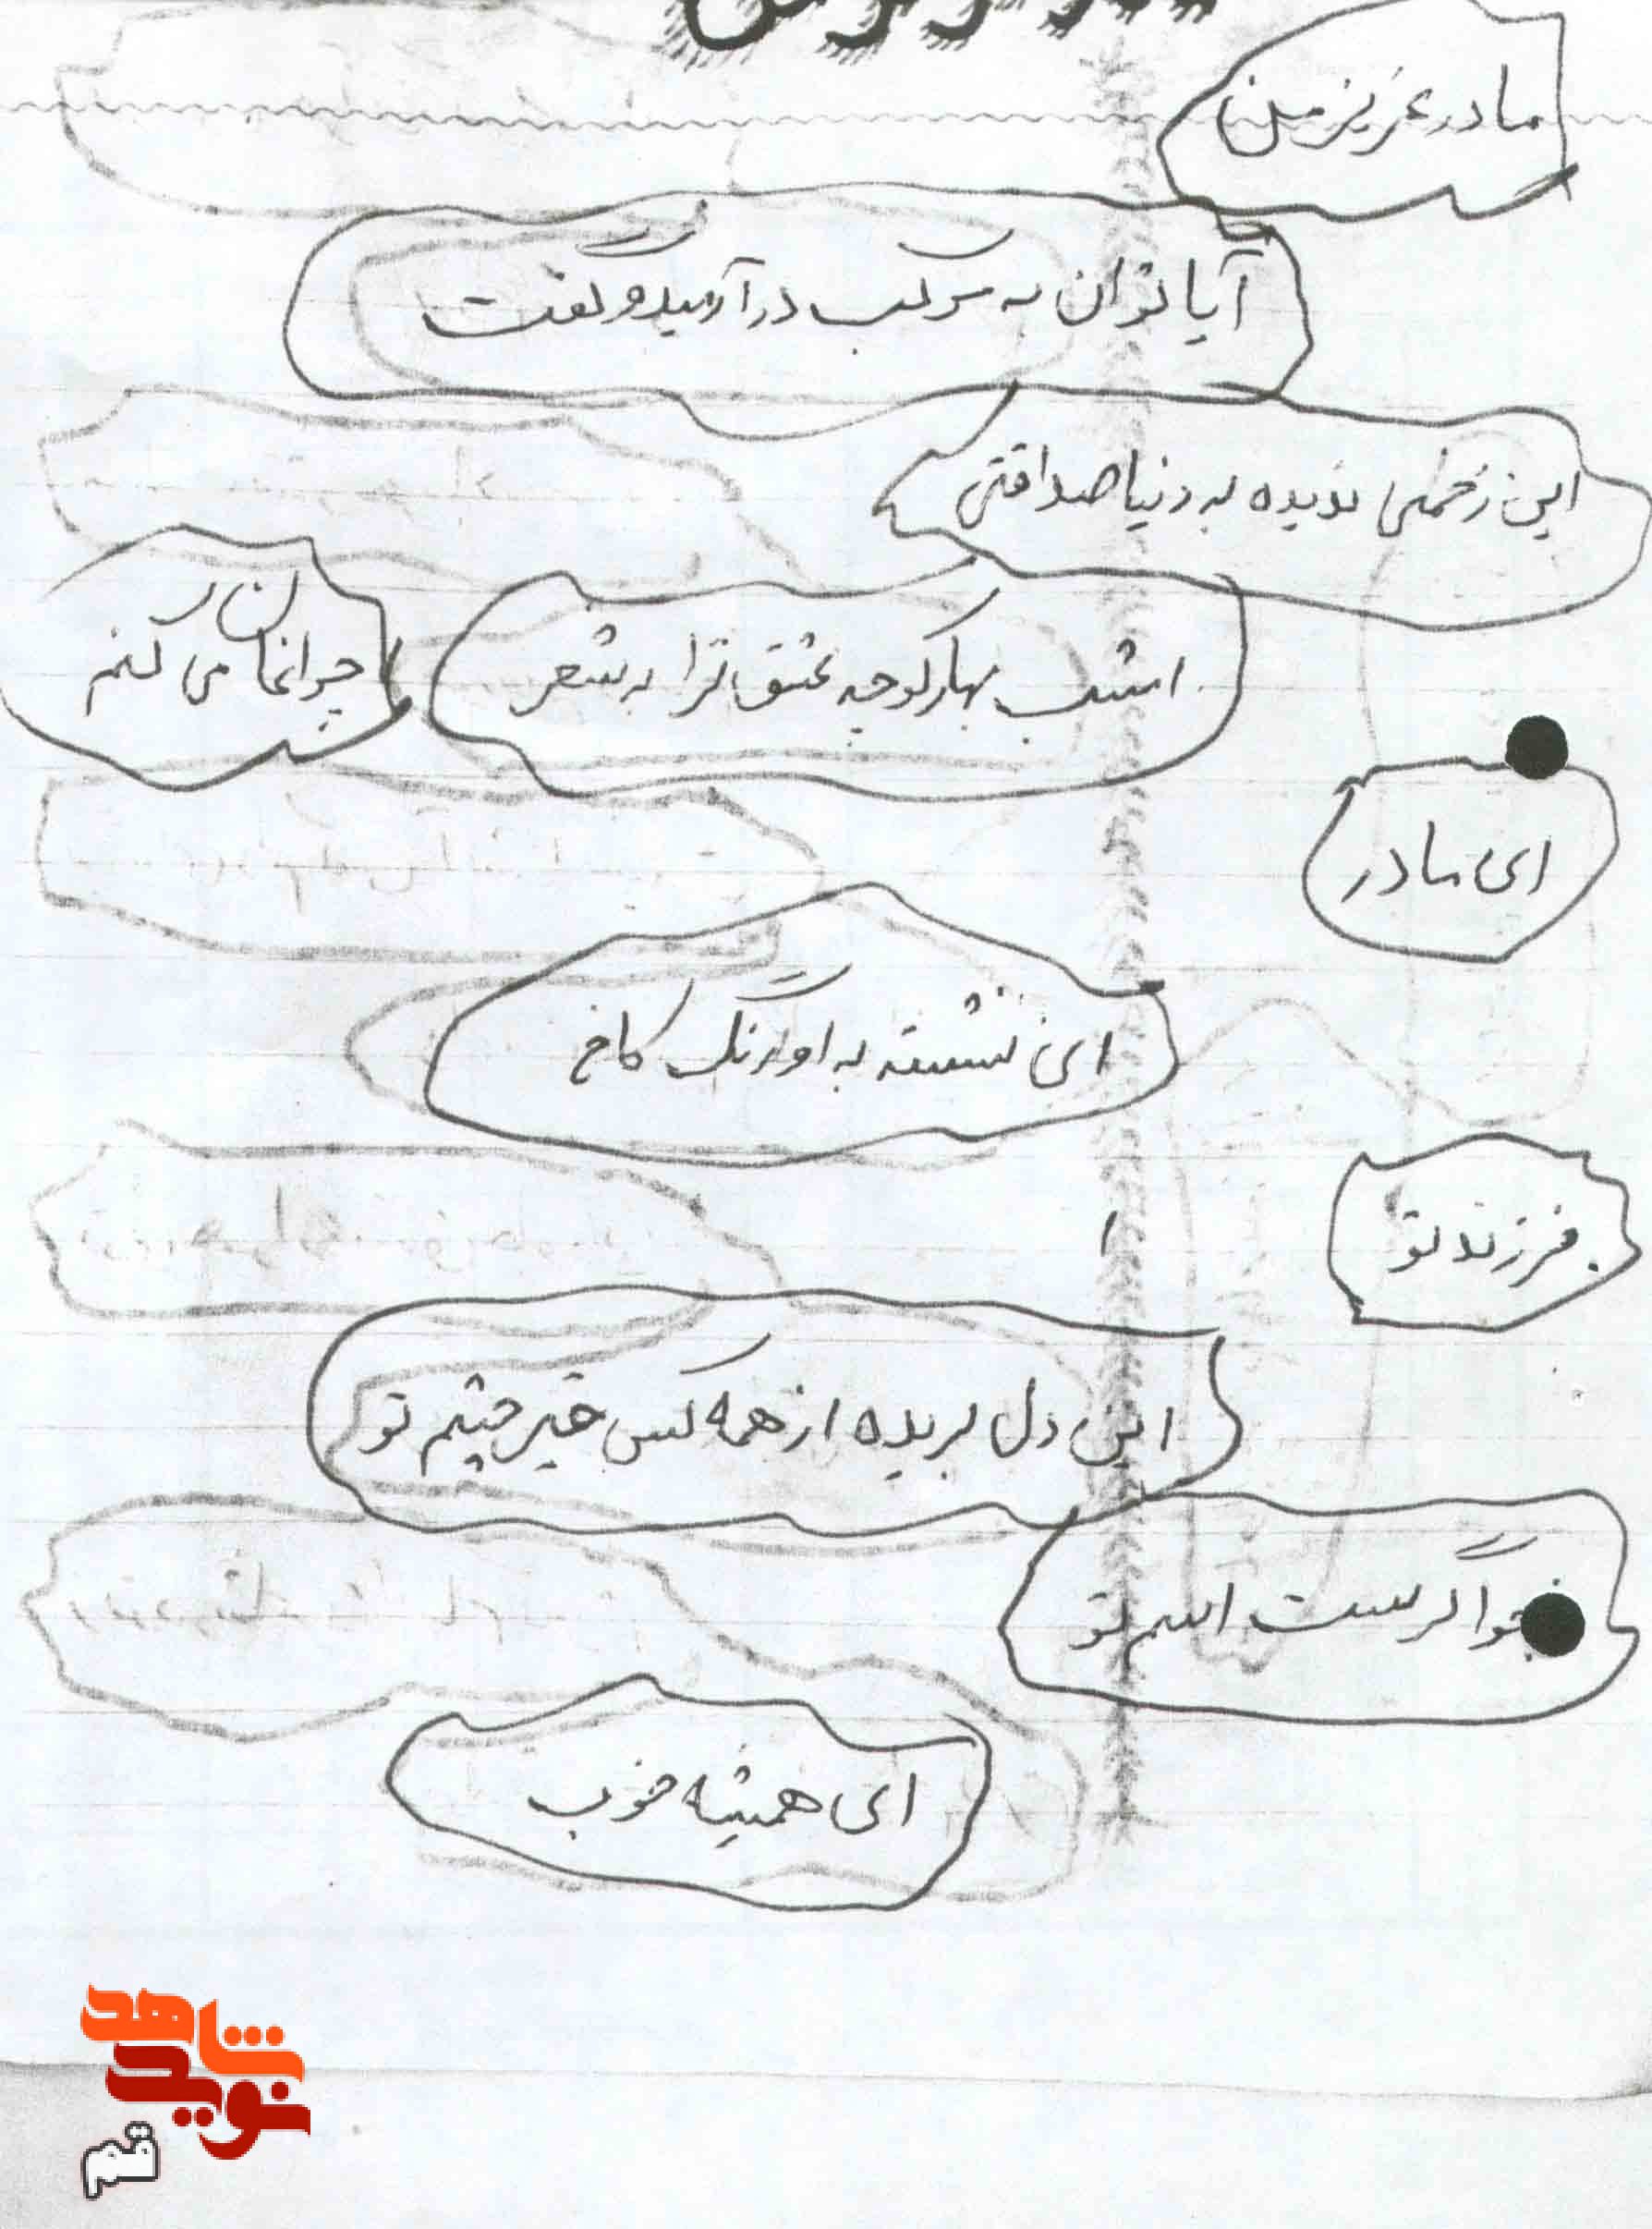 مادر عزیز من
آیا توان به مرگ در آرمید و گفت
این زخمی ندیده به دنیا صداقتی
امشب بهار کوچه عشق ترا به شعر
چراغان می کنم
ای مادر
ای نشسته به اورنگ کاخ
فرزند تو
این دل بریده از همه کس خیر چشم تو
اگر است اسم تو
ای همیشه خوب
شاهد
نوید
قم